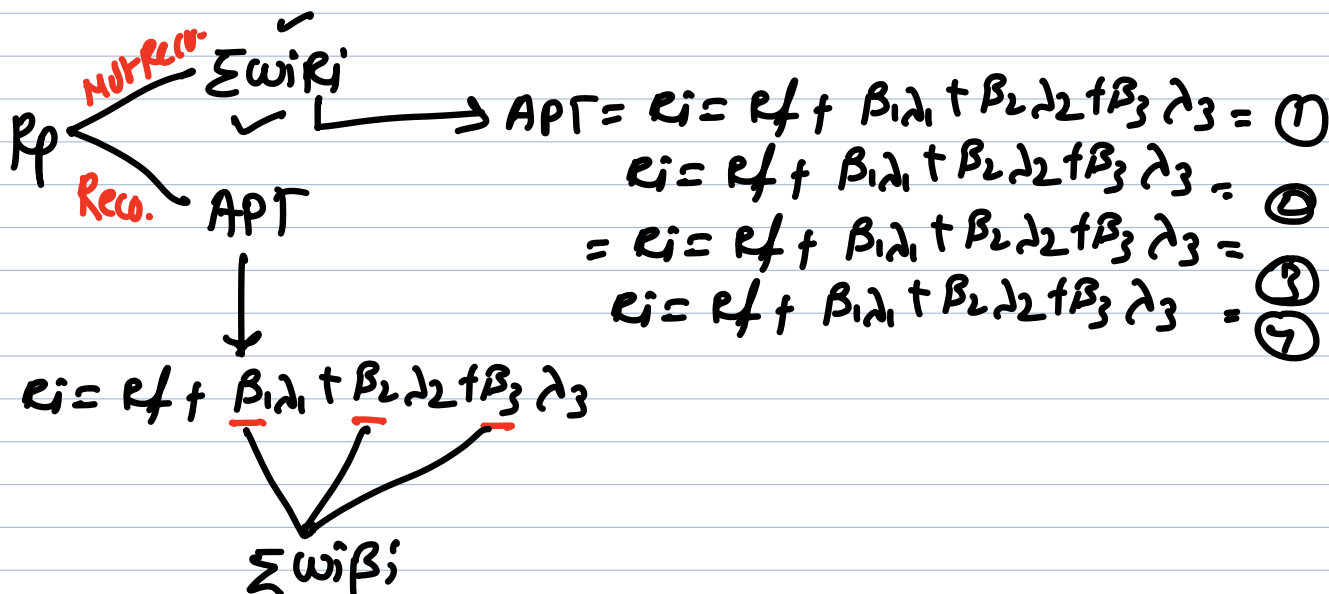 Not Reco.
ΣwiRi
Rp
Reco.
APT
APT = Ri = Rf + β1λ1 + β2λ2 + β3λ3 = ①
Ri = Rf + β1λ1 + β2λ2 + β3λ3 = ②
= Ri = Rf + β1λ1 + β2λ2 + β3λ3 = ③
Ri = Rf + β1λ1 + β2λ2 + β3λ3 = ④
Ri = Rf + β1λ1 + β2λ2 + β3λ3
Σwiβi